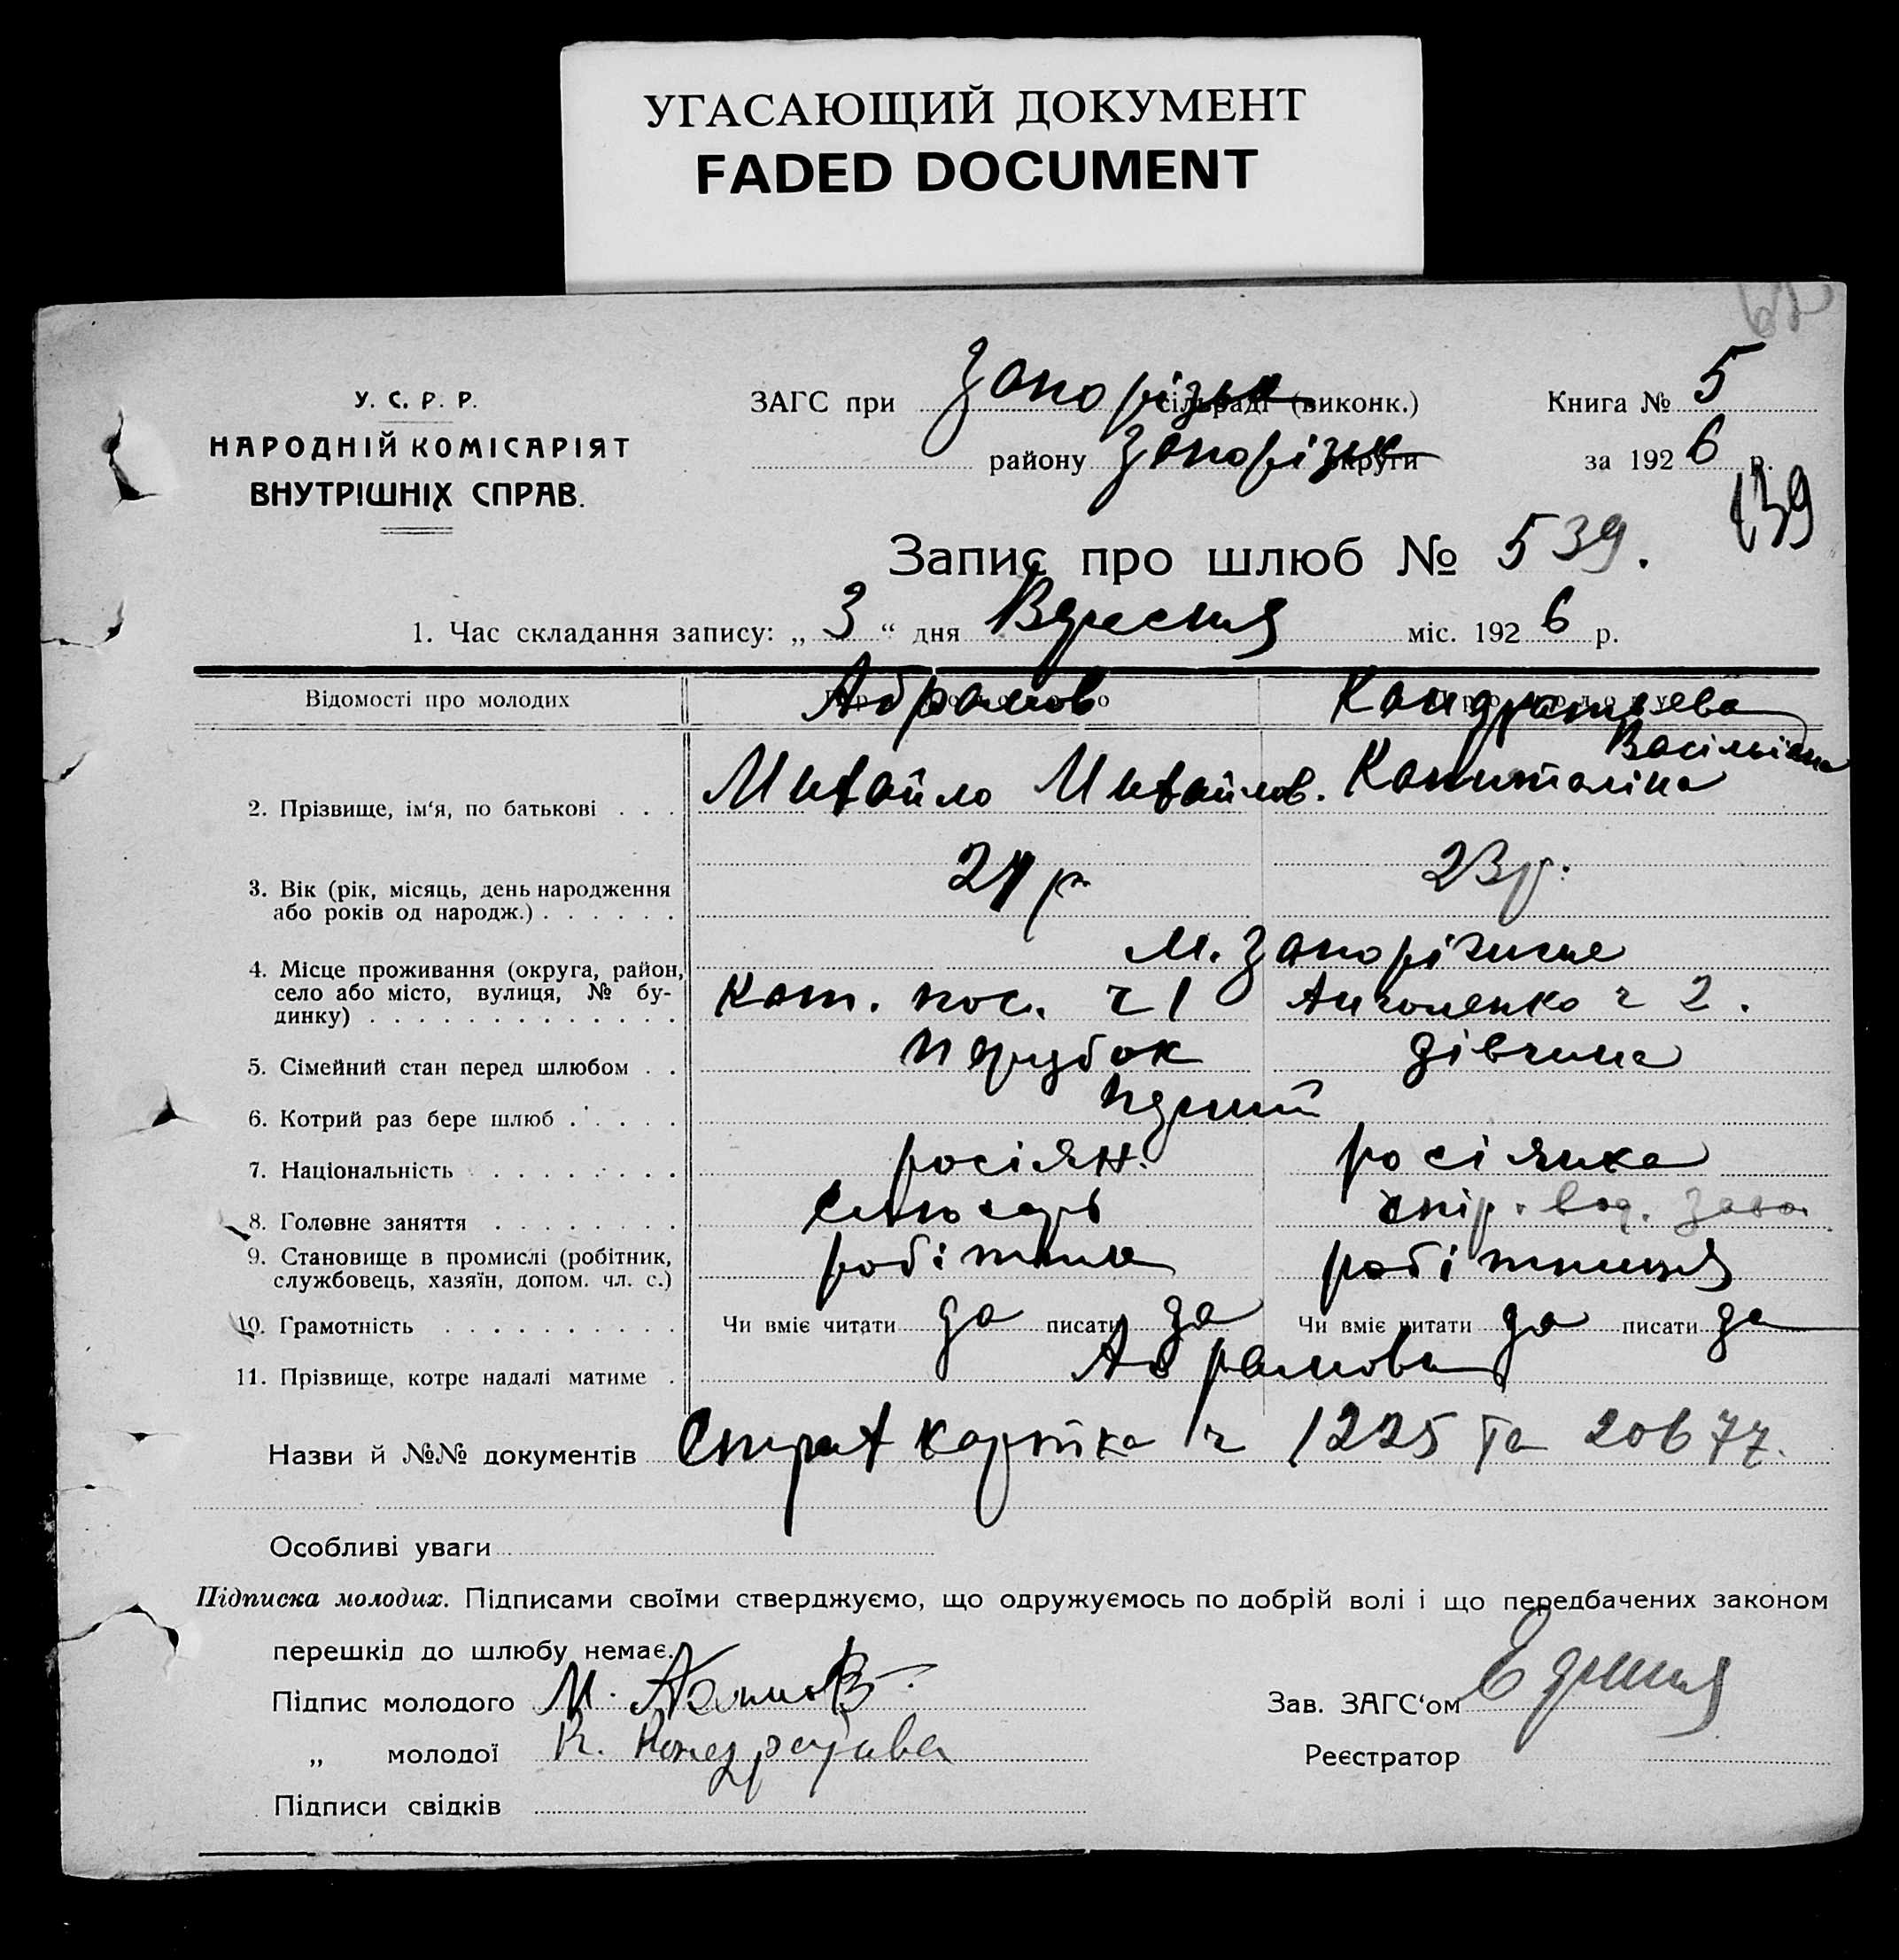 УГАСАЮЩИЙ ДОКУМЕНТ
FADED DOCUMENT
У. С. Р. Р.
НАРОДНІЙ КОМІСАРІЯТ
ВНУТРІШНІХ СПРАВ.
ЗАГС при Запорізьк сільраді (виконк.)
району Запорізьк округи
Книга № 5
за 1926 р.
139
Запис про шлюб № 539.
1. Час складання запису: „ 3 “ дня Вересня міс. 1926 р.
Відомості про молодих Абрамов Кандратьева
2. Прізвище, ім‘я, по батькові . . . Михайло Михайлов. Капиталіна Васільівна
3. Вік (рік, місяць, день народження
або років од народж.) . . . . . . 24 р 23 р.
4. Місце проживання (округа, район, м. Запоріжжє
село або місто, вулиця, № бу-
динку) . . . . . . . . . . . . . Кат. пос. ч 1 ч 2.
5. Сімейний стан перед шлюбом . . парубок дівчина
6. Котрий раз бере шлюб . . . . . перший
7. Національність . . . . . . . . росіян. росіянка
8. Головне заняття . . . . . . . слюсарь спір. вод. заво
9. Становище в промислі (робітник,
службовець, хазяїн, допом. чл. с.) робітник робітниця
10. Грамотність . . . . . . . . . . Чи вміє читати да писати да Чи вміє читати да писати да
11. Прізвище, котре надалі матиме . Абрамови
Назви й №№ документів Страх картка ч 1225 та 20677.
Особливі уваги
Підписка молодих. Підписами своїми стверджуємо, що одружуємось по добрій волі і що передбачених законом
перешкід до шлюбу немає.
Підпис молодого М. Абрамов
„ молодої К. Кондратьева
Підписи свідків
Зав. ЗАГС‘ом
Реєстратор